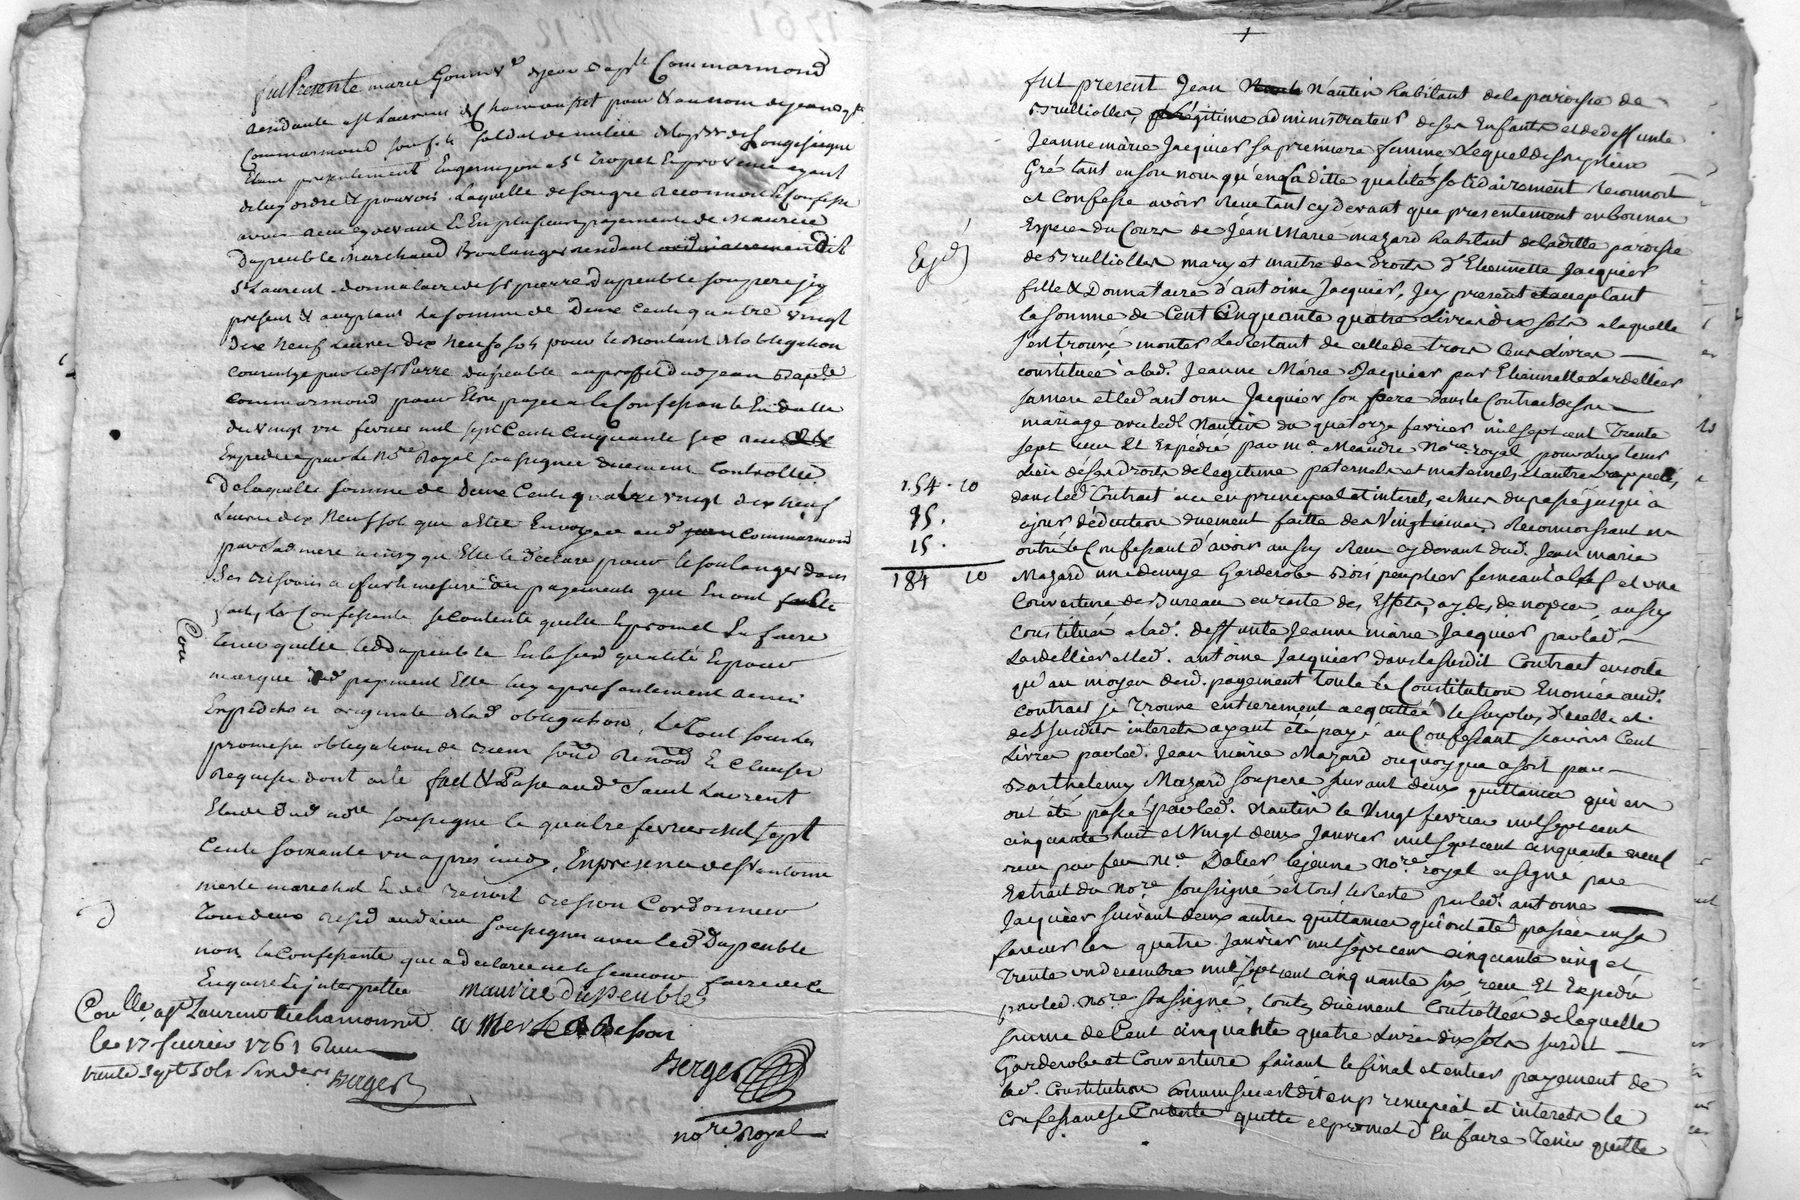 fut Presente marie Gou Jean Bapte Commarmond
residante a st Laurent de Chamousset pour & au nom de jean Bpte
Commarmond son fils soldat de milice de Longessaigne
Etant presentement En garnizon a St Tropet En provence ayant
de luy ordre & pouvoir. Laquelle de son gre Reconnoit & Confesse
avoir receu cydevant & En plusieurs payements de Maurice
Dupeuble marchand Boulanger residant audit
St Laurent donnataire de Sr pierre Dupeuble son pere jcy
present & acceptant la somme de Deux Cents quatre vingt
dix Neuf Livres dix Neuf sols pour le montant de lobligation
consentye par led Sr Pierre dupeuble au proffit dud jean Bapte
Commarmond pour Etre payee a la Confessante En datte
du vingt un fevrier mil sept Cents Cinquante six receue
Expediee par le Nre Royal soussigné duement Controllée
De laquelle somme de deux Cents quatre vingt dix Neuf
Livres dix Neuf sols que a Eté Envoyee aud Commarmond
par sad mere ainsy qu Elle le declare pour le soulager dans
ses besoins a fur & mesure des payements que En ont
faits, la Confessante se contente quitte & promet En faire
Tenir quitte led Dupeuble En le susd qualité & pour
marque dud payement Elle luy a presentement remis
Expedition originale de lad obligation, Le Tout sous les
promesses obligations de biens soumd Renond & Clauses
Requises dont acte fait & Passe aud Saint Laurent
Etude dud nore soussigne le quatre fevrier mil sept
Cents soixante un apres midy, En presence de Sr antoine
merle marechal & de benoit besson Cordonnier
Tous deux resid aud lieu soussignes avec led Dupeuble
non la Confessante que a declaree ne le scavoir faire de ce
Enquise & jnterpellee
maurice dupeuble
a Merle B Besson
Con
Conllé a St Laurent de chamousset
le 17 fevrier 1761 Reçu
trente sept sols six ders
Berger
Berger
nore Royal
fut present Jean Nautin habitant de la paroisse de
Brulliolles, Légitime administrateur de ses Enfants et de deffunte
Jeanne marie Jacquier sa premiere femme Lequel de son plein
Gré tant en son nom qu'en la ditte qualité solidairement Reconnoit
et Confesse avoir Receu tant cy devant que presentement en bonnes
Especes du Cours de Jean Marie mazard habitant de la ditte paroisse
de Brulliolles mary et maitre des Droits d'Etiennette Jacquier
fille & Donnataire d'antoine Jacquier, Jcy present et acceptant
la somme de Cent Cinquante quatre Livres dix sols a laquelle
s'en trouvé monter Le Restant de celle de trois Cens Livres
constituée a lad. Jeanne Marie Jacquier par Etiennette Lardellier
sa mere et led antoine Jacquier son frere dans le Contrat de son
mariage avec led Nautin du quatorze fevrier mil sept cent Trente
sept receu Et Expédié par me Meandre Nore royal pour Luy tenir
Lieu de ses Droits de legitime paternels et maternels, et autres rappellés
dans led Contrat en principal et interets, echus du passé jusqu'a
ce jour déduction duement faitte des Vingtiemes, Reconnoissant en
outre le Confessant d'avoir aussy Receu cy devant dud. Jean marie
Mazard une demye Garderobe Bois peuplier fermant a clef et une
Couverture de Bureau en reste des Effets, aydes de nopces, aussy
constitués a lad. deffunte Jeanne marie Jacquier par lad.
Lardellier et led. antoine Jacquier dans le susdit Contrat en sorte
qu'au moyen dud. payement toute la Constitution Enoncée aud.
contrat se Trouve entierement acquittée le surplus d'icelle et
des susdits interets ayant été payé au Confessant scavoir Cent
Livres par led. Jean marie Mazard ou quoyque ce soit par
Barthelemy Mazard son pere suivant deux quittances qui en
ont été passé par led. Nautin le Vingt fevrier mil sept cent
cinquante huit et Vingt deux Janvier mil sept cent cinquante neuf
receu par feu Me Dalier lejeune Nore royal et signe par
Extrait du Nore soussigné et tout le Reste par led. antoine
Jacquier suivant deux autres quittances qui ont été passées en sa
faveur les quatre Janvier mil sept cent cinquante cinq et
Trente un decembre mil sept cent cinquante six, receu Et Expedié
par led. nore soussigné, toutes duement Contrôllées de laquelle
somme de Cent cinquante quatre Livres dix sols susdit
Garderobe et Couverture faisant le final et entier payement de
lad. Constitution comme sus est dit en principal et interets le
Confessant se Contente quitte et promet d'En faire Tenir quitte
Exp d
154 - 10
15.
15.
184 10